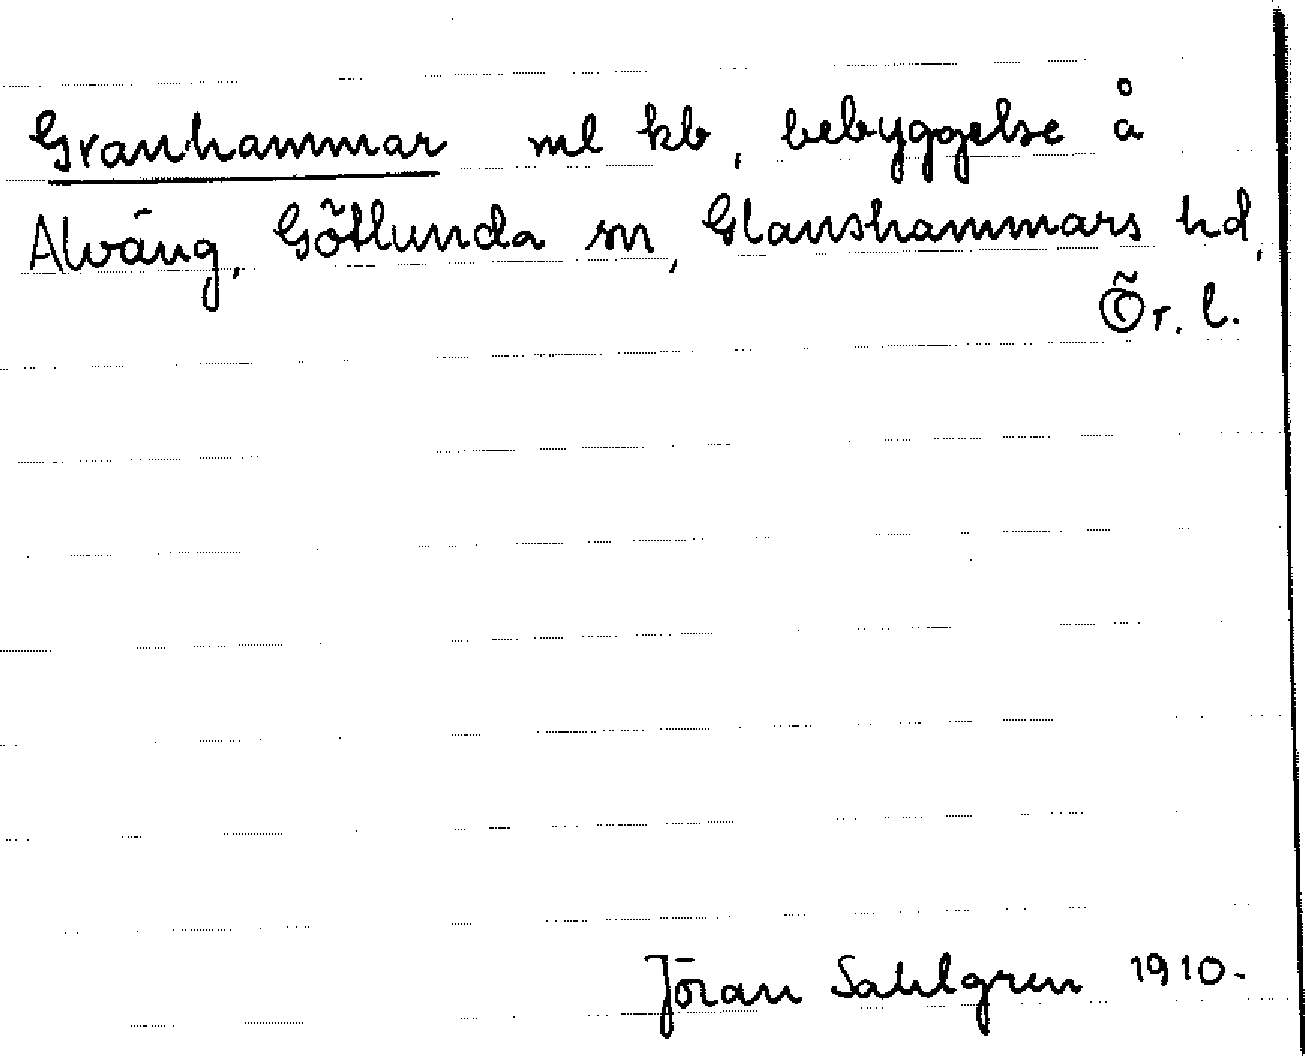 Granhammar ml kb, bebyggelse å
Alväng, Götlunda sn, Glanshammars hd,
Ör. l.
Jöran Sahlgren 1910.